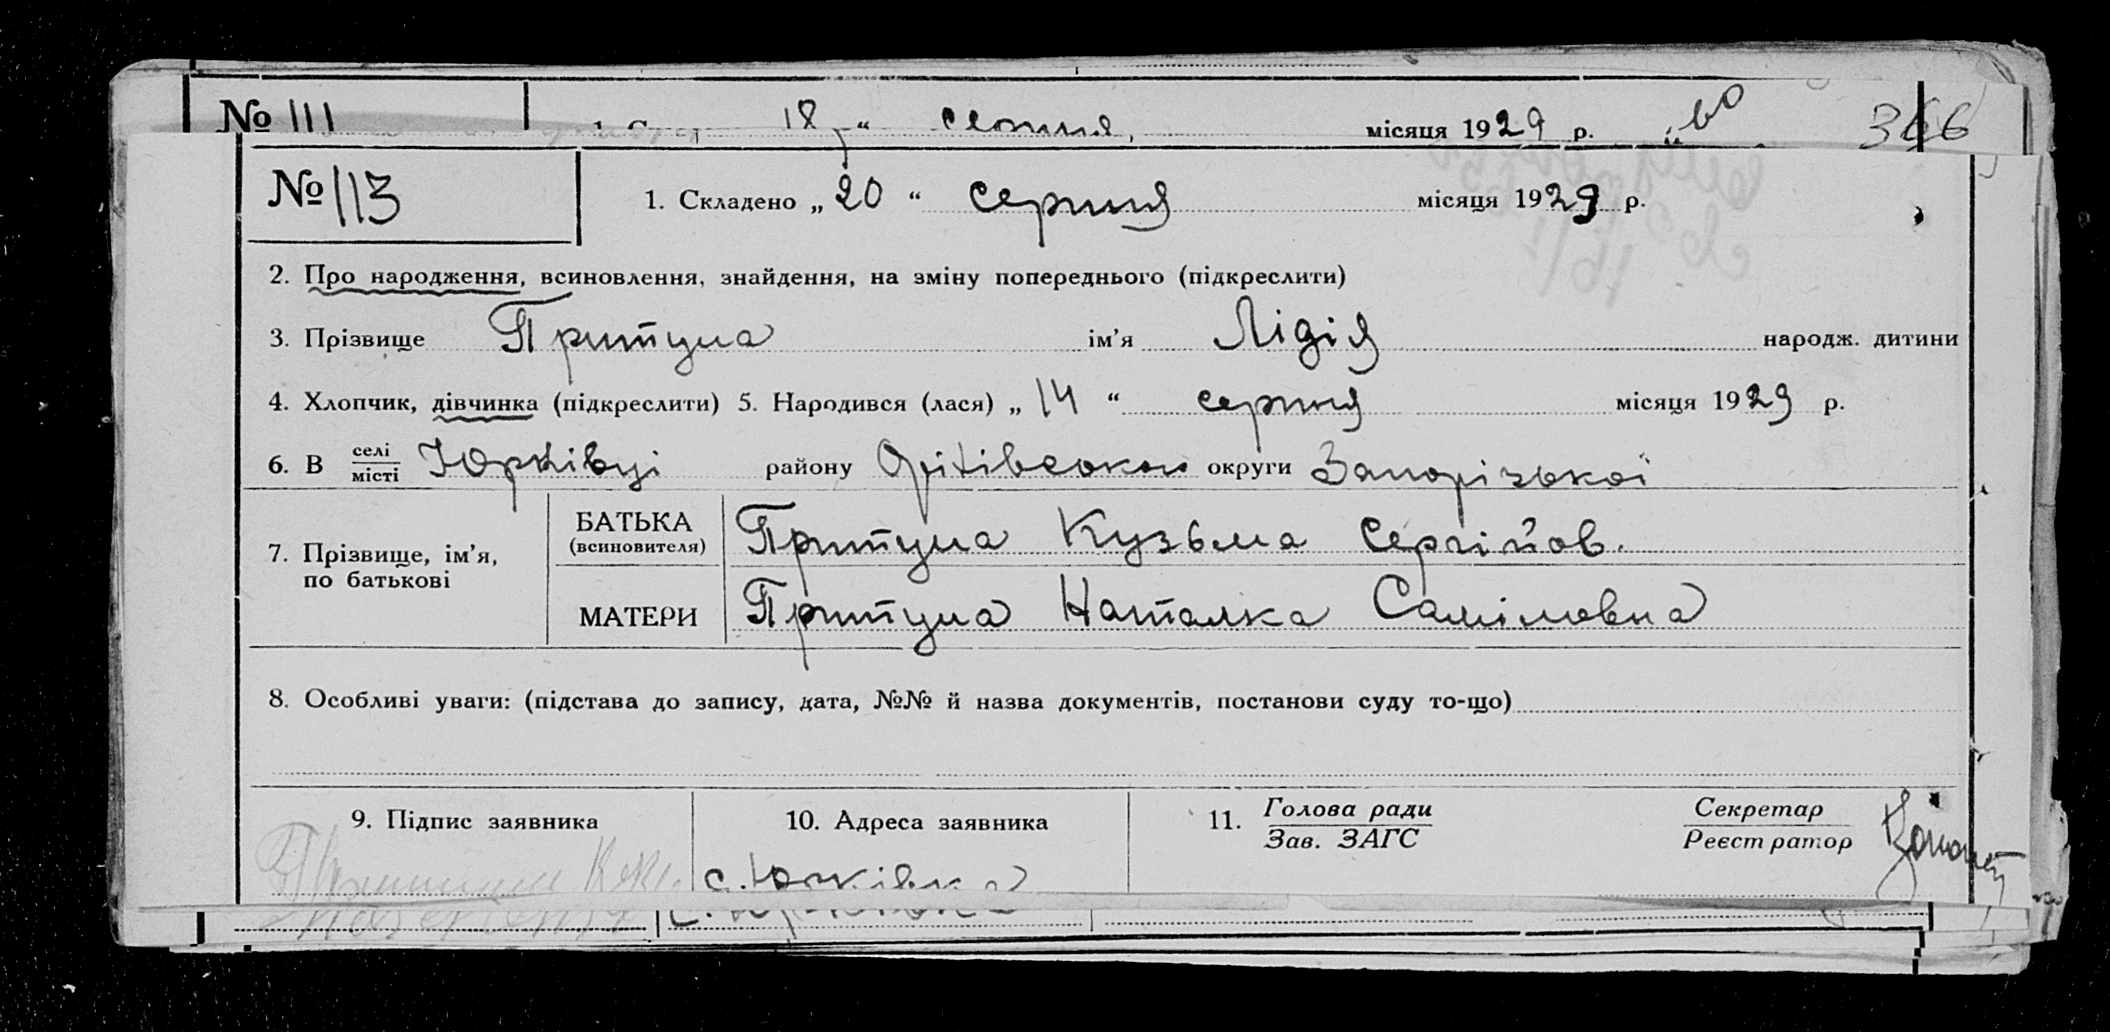 № 111 18 серпня місяця 1929 р. 366
№ 113 1. Складено „20“ серпня місяця 1929 р.
2. Про народження, всиновлення, знайдення, на зміну попереднього (підкреслити)
3. Прізвище Притула ім’я Лідія народж. дитини
4. Хлопчик, дівчинка (підкреслити) 5. Народився (лася) „14“ серпня місяця 1929 р.
6. В селі місті Юрківці району Оріхівського округи Запорізької
7. Прізвище, ім’я, по батькові
БАТЬКА (всиновителя) Притула Кузьма Сергійов.
МАТЕРИ Притула Наталка Саміловна
8. Особливі уваги: (підстава до запису, дата, №№ й назва документів, постанови суду то-що)
9. Підпис заявника 10. Адреса заявника 11. Голова ради Зав. ЗАГС Секретар Реєстратор
с. Юрківка